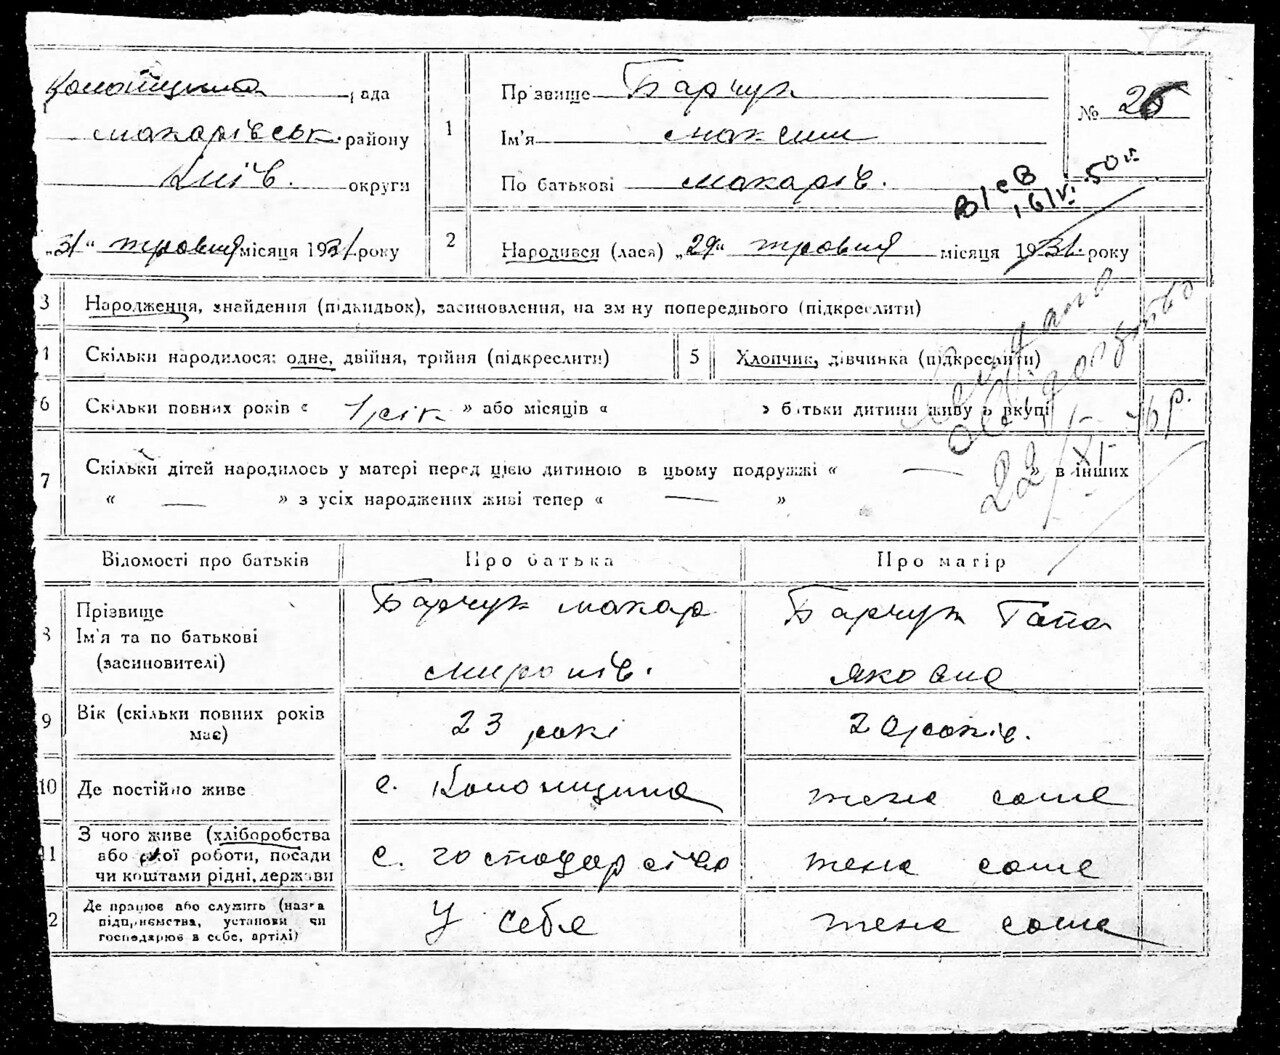 Колонщина рада
Макарівськ. району
Київ. округи
„31" травня місяця 1931 року
1
Прізвище Барчук
Ім'я Максим
По батькові Макарів.
№ 26
16/VI 50 г.
2
Народився (лася) „29" травня місяця 1931 року
3 Народження, знайдення (підкидьок), засиновлення, на зміну попереднього (підкреслити)
Скільки народилося: одне, двійня, трійня (підкреслити)
5 Хлопчик, дівчинка (підкреслити)
6 Скільки повних років « 1 рік » або місяців « » батьки дитини живуть вкупі
7 Скільки дітей народилось у матері перед цією дитиною в цьому подружжі « — » в інших
« — » з усіх народжених живі тепер « — »
22/XI 46 р.
Відомості про батьків
Про батька
Про матір
8 Прізвище
Ім'я та по батькові
(засиновителі)
Барчук Макар
Миронів.
Барчук Гапа
Яковна
9 Вік (скільки повних років
має)
23 рокі
20 років.
10 Де постійно живе
с. Колонщина
теж саме
11 З чого живе (хліборобства
або якої роботи, посади
чи коштами рідні, держави
с. господарство
теж саме
12 Де працює або служить (назва
підприємства, установи чи
господарює в себе, артілі)
У себе
теж саме